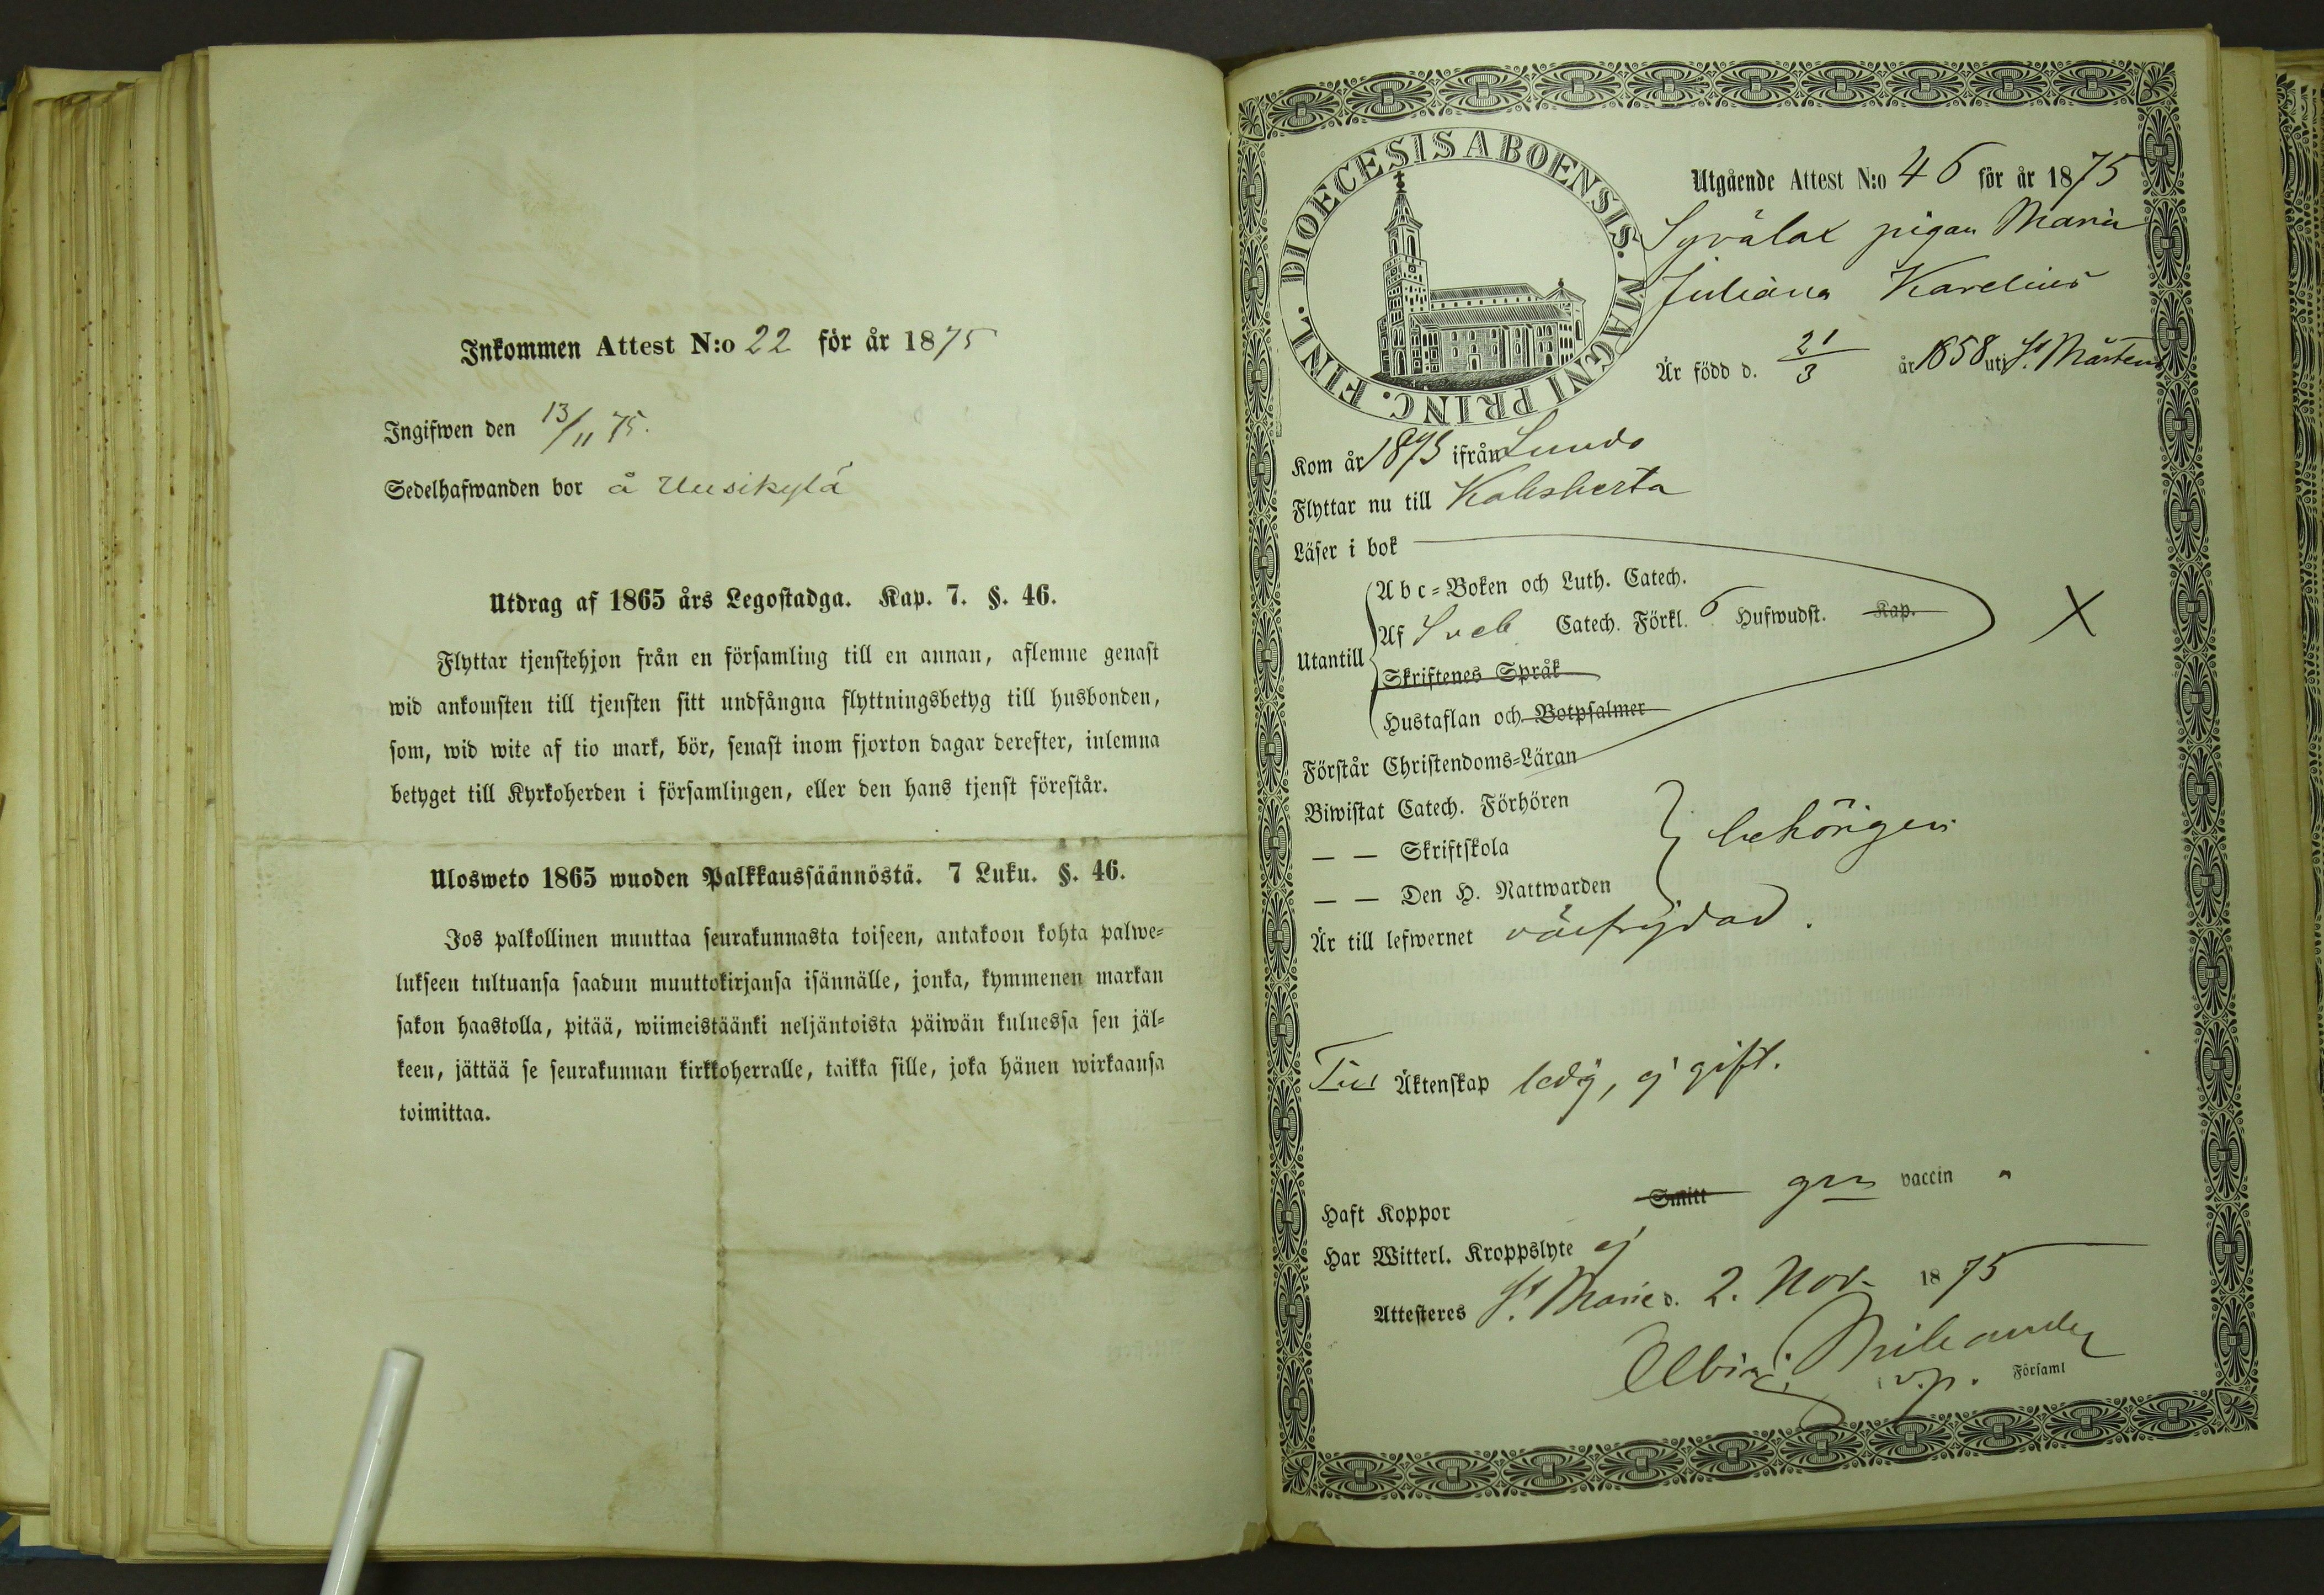 Inkommen Attest N:o 22 för år 1875
Ingifwen den 13/11 75.
Sedelhafwanden bor å Uusikylä
Utdrag af 1865 års Legostadga. Kap. 7. §. 46.
Flyttar tjenstehjon från en församling till en annan, aflemne genast
wid ankomsten till tjensten sitt undfångna flyttningsbetyg till husbonden,
som, wid wite af tio mark, bör, senast inom fjorton dagar derefter, inlemna
betyget till Kyrkoherden i församlingen, eller den hans tjenst förestår.
Ulosweto 1865 wuoden Palkkaussäännöstä. 7 Luku. §. 46.
Jos palkollinen muuttaa seurakunnasta toiseen, antakoon kohta palwe=
lukseen tultuansa saadun muuttokirjansa isännälle, jonka, kymmenen markan
sakon haastolla, pitää, wiimeistäänki neljäntoista päiwän kuluessa sen jäl=
keen, jättää se seurakunnan kirkkoherralle, taikka sille, joka hänen wirkaansa
toimittaa.
FINL. DIOECESIS ABOENSIS. MAGNI PRINC.
Utgående Attest N:o 46 för år 1875
Syvälax pigan Maria
Juliana Karelius
Är född d. 21/3 år 1858 uti St. Mårtens
Kom år 1873 ifrån Lundo
Flyttar nu till Kakskerta
Läser i bok
Utantill
Abc=Boken och Luth. Catech.
Af Sveb. Catech. Förkl. 6 Hufwudst. Kap.
Skriftenes Språk
Hustaflan och Botpsalmer
X
Förstår Christendoms=Läran
Biwistat Catech. Förhören
— — Skriftskola
behörigen
— — Den H. Nattwarden
Är till lefwernet väl frejdad.
Till Äktenskap ledig, ej gift.
Haft Koppor Smitt gm vaccin
Har Witterl. Kroppslyte ej
Attesteres St. Marie d. 2. Nov. 1875
Albin
v. p. Församl